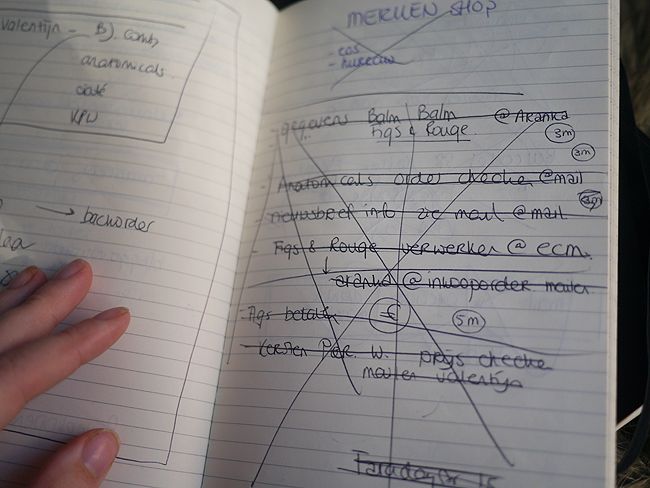 Valentijn - B). Comb,
anatomicals
ciaté
KPU
→ backorder
MERKEN SHOP
cos
gegevens Balm Balm @ Aranka
Figs & Rouge
3m
3m
- Anatomicals order checke @mail
- nieuwsbrief info zie mail @mail
- Figs & Rouge verwerken @ ecm.
↓ aranka @ inkooporder mailen
- Figs betalen € 5m
- Kersten P&R. W. prijs checke
mailen Valentijn